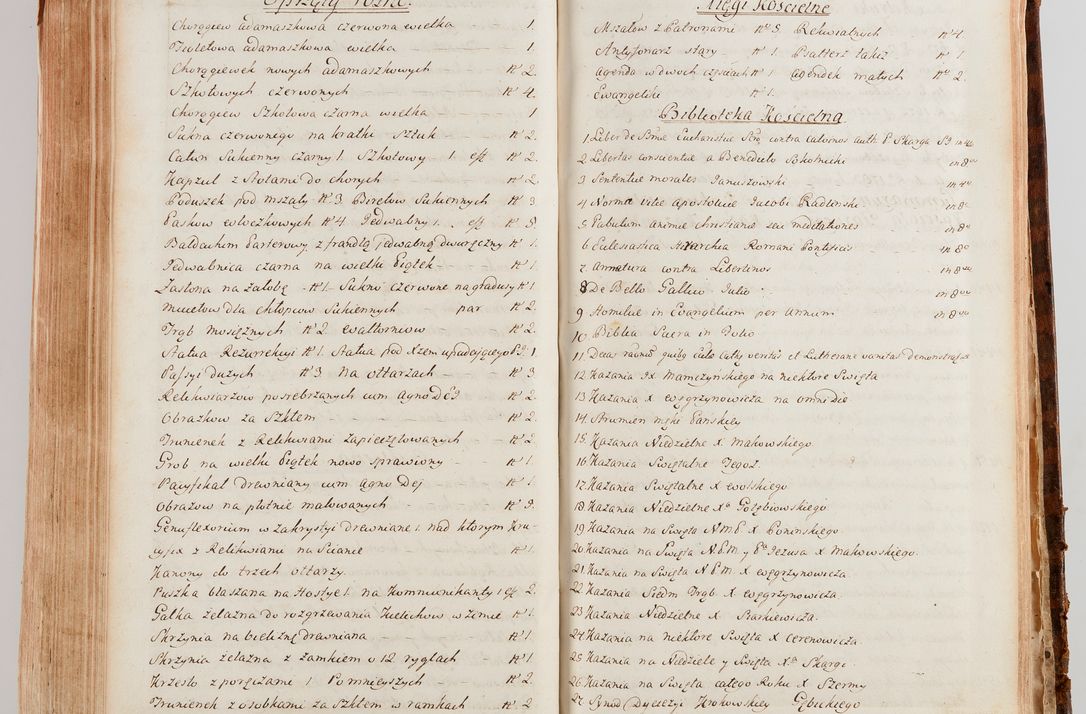 Sprzęty rożne.
Chorągiew adamaszkowa czerwona wielka 1.
Fioletowa adamaszkowa wielka 1.
Chorągiewek nowych adamaszkowych No 2.
Szkotowych czerwonych No 4.
Chorągiew Szkotowa czarna wielka 1
Sukna czerwonego na kratki Sztuk No 2.
Całun Sukienny czarny 1. Szkotowy 1. No 2.
Kapzul z Stołami do chorych No 2.
Poduszek pod mszały No 3. Biretow Sukiennych No 3
Paskow włoczkowych No 4. Jedwabny 1. No 5.
Baldachim Parterowy z frandzlą jedwabną dwuręczny No 1.
Jedwabnica czarna na wielki Piątek No 1.
Zasłona na żałobę No 1 Sukni czerwone na gradusy No 1
Mucetow dla chłopcow Sukiennych par No 2.
Trąb mosięznych No 2. waltorniow No 2.
Statua Rezurrekcyi No 1. Statua pod Xżem upadającego PJ. 1
Passyi dużych No 3 na ołtarzach No 3
Relikwiarzow posrebrzanych cum Agno Dei No 2.
Obrazkow za Szkłem No 2.
Trunienek z Relikwiami zapieczętowanych No 2.
Grob na wielki Piątek nowo sprawiony No 1.
Pacyfikał drewniany cum agno Dej No 1.
Obrazow na płotnie malowanych No 9.
Genuflexorium w zakrystyi drewniane 1. nad ktorym Kru-
cyfix z Relikwiami na Scianie No 1.
Kanony do trzech ołtarzy.
Puszka blaszana na Hostye 1. na Kommunikanty 1 2.
Gałka żelazna do rozgrzewania Kielichow w zimie No 1.
Skrzynia na bieliznę drewniana No 1.
Skrzynia żelazna z zamkiem o 12 ryglach No 1
Krzesło z poręczami 1 Pomnieyszych No 2
Trunienek z osobkami za Szkłem w ramkach No 2
Xięgi Kościelne
Mszałow z Patronami No 5. Rekwialnych No 4.
Antyfonarz stary No 1 Psałterz takiż No 1
Agenda w dwoch częściach No 1 agendek małych No 2.
Ewangeliki No 1.
Biblioteka Kościelna
1 Liber de Sma Eucharistiæ contra Calvinos auth P. Skarga SJ in 4to
2 Libertas consientiæ a Benedicto Sokolnicki in 8vo
3 Sententiæ morales Januszowski in 4to
4 Norma vitæ apostolicæ Jacobi Radlinski in 8o
5 Pabulum animæ christianæ seu meditationes in 8o
6 Eclesiastica Hierarchia Romani Pontificis in 8o
7 Armatura contra Libertinos in 8vo
8 De Bello Gallico Julio in 8vo
9 Homiliæ in Evangelium per annum in 8vo
10 Biblia Sacra in Folio
12 Kazania Mamczyńskiego na niektore Swięta
13 Kazania X węgrzynowicza na omni die
14 Strumien męki Pańskiey
15 Kazania Niedzielne X. Makowskiego
16 Kazania Swiętalne Tegoż.
17 Kazania Swiętalne X wolskiego
18 Kazania Niedzielne Xa Gołębiowskiego
19 Kazania na Swięta NMP X Ponińskiego.
20 Kazania na Swięta N.P.M. y Pa Jezusa X Makowskiego.
21 Kazania na Swięta N.P.M. X węgrzynowicza
22 Kazania Siedm Trąb X węgrzynowicza
23 Kazania Niedzielne X Piaskiewicza.
24 Kazania na niektore Swięta X Cerenowicza
25 Kazania na Niedziele y Swięta Xa Skargi
26 Kazania na Swięta całego Roku X Szermy
27 Synod Dyecezyi Krakowskiey Gębickiego